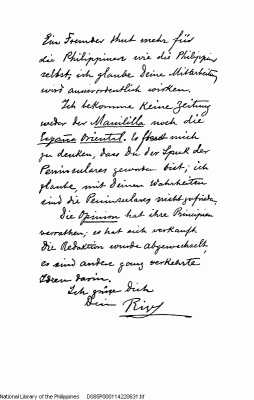 Ein Fremder thut mehr für
die Philippinen wie die Philippin
selbst, ich glaube Deine Mitarbeitung
wird ausserordentlich wirken.
Ich bekomme keine Zeitung
weder der Manililla noch die
España Oriental. Es freut mich
zu denken, dass Du der Spuk der
Peninsulares geworden bist; ich
glaube, mit Deinen Wahrheiten
sind die Peninsulares nicht zufrieden.
Die Opinion hat ihre Principien
verrathen; es hat sich verkauft
die Redaktion wurde abgewechselt,
es sind andere ganz verkehrte
Ideen darin.
Ich grüsse Dich
Dein Rizal
National Library of the Philippines D085P00011422063f.tif